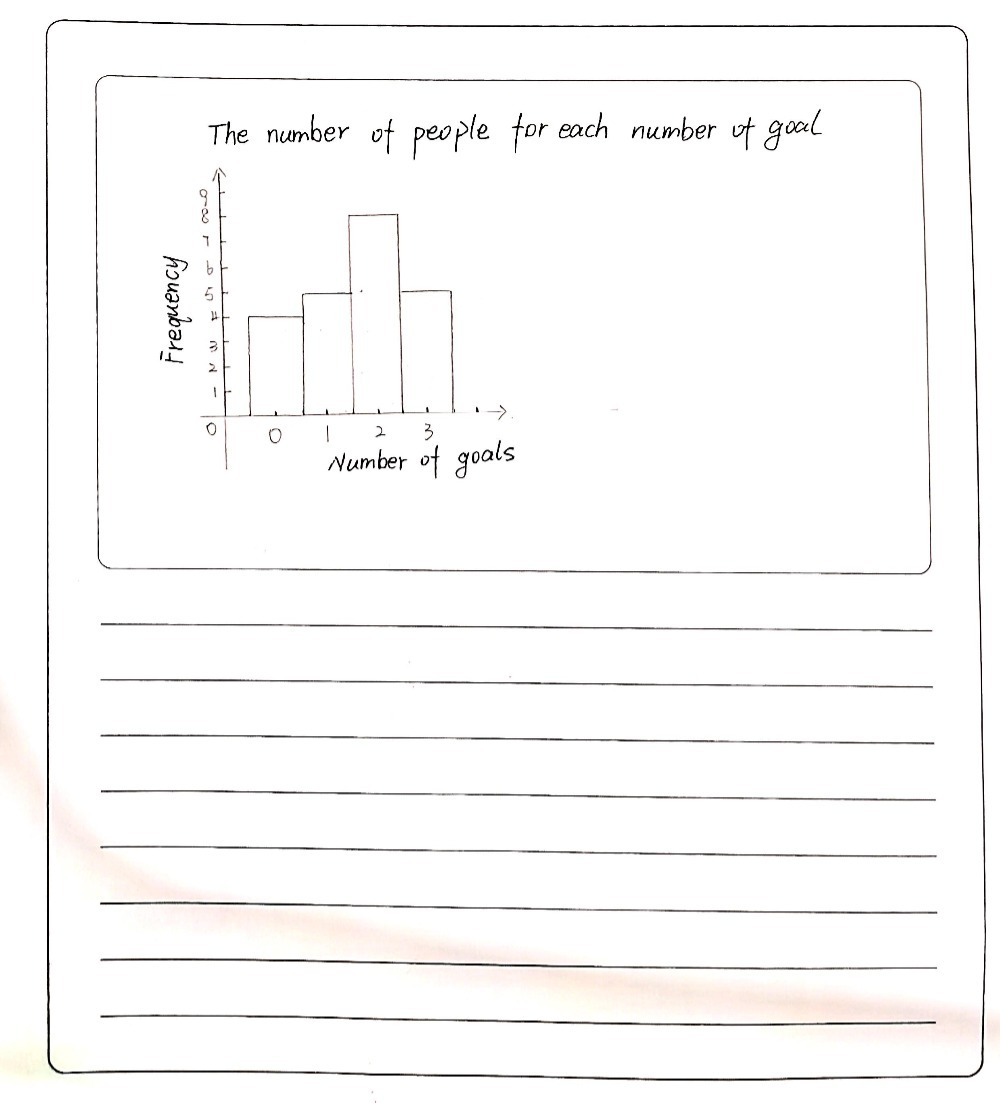 The number of people for each number of goal
9
8
7
6
5
4
3
2
1
0
0 1 2 3
Frequency
Number of goals